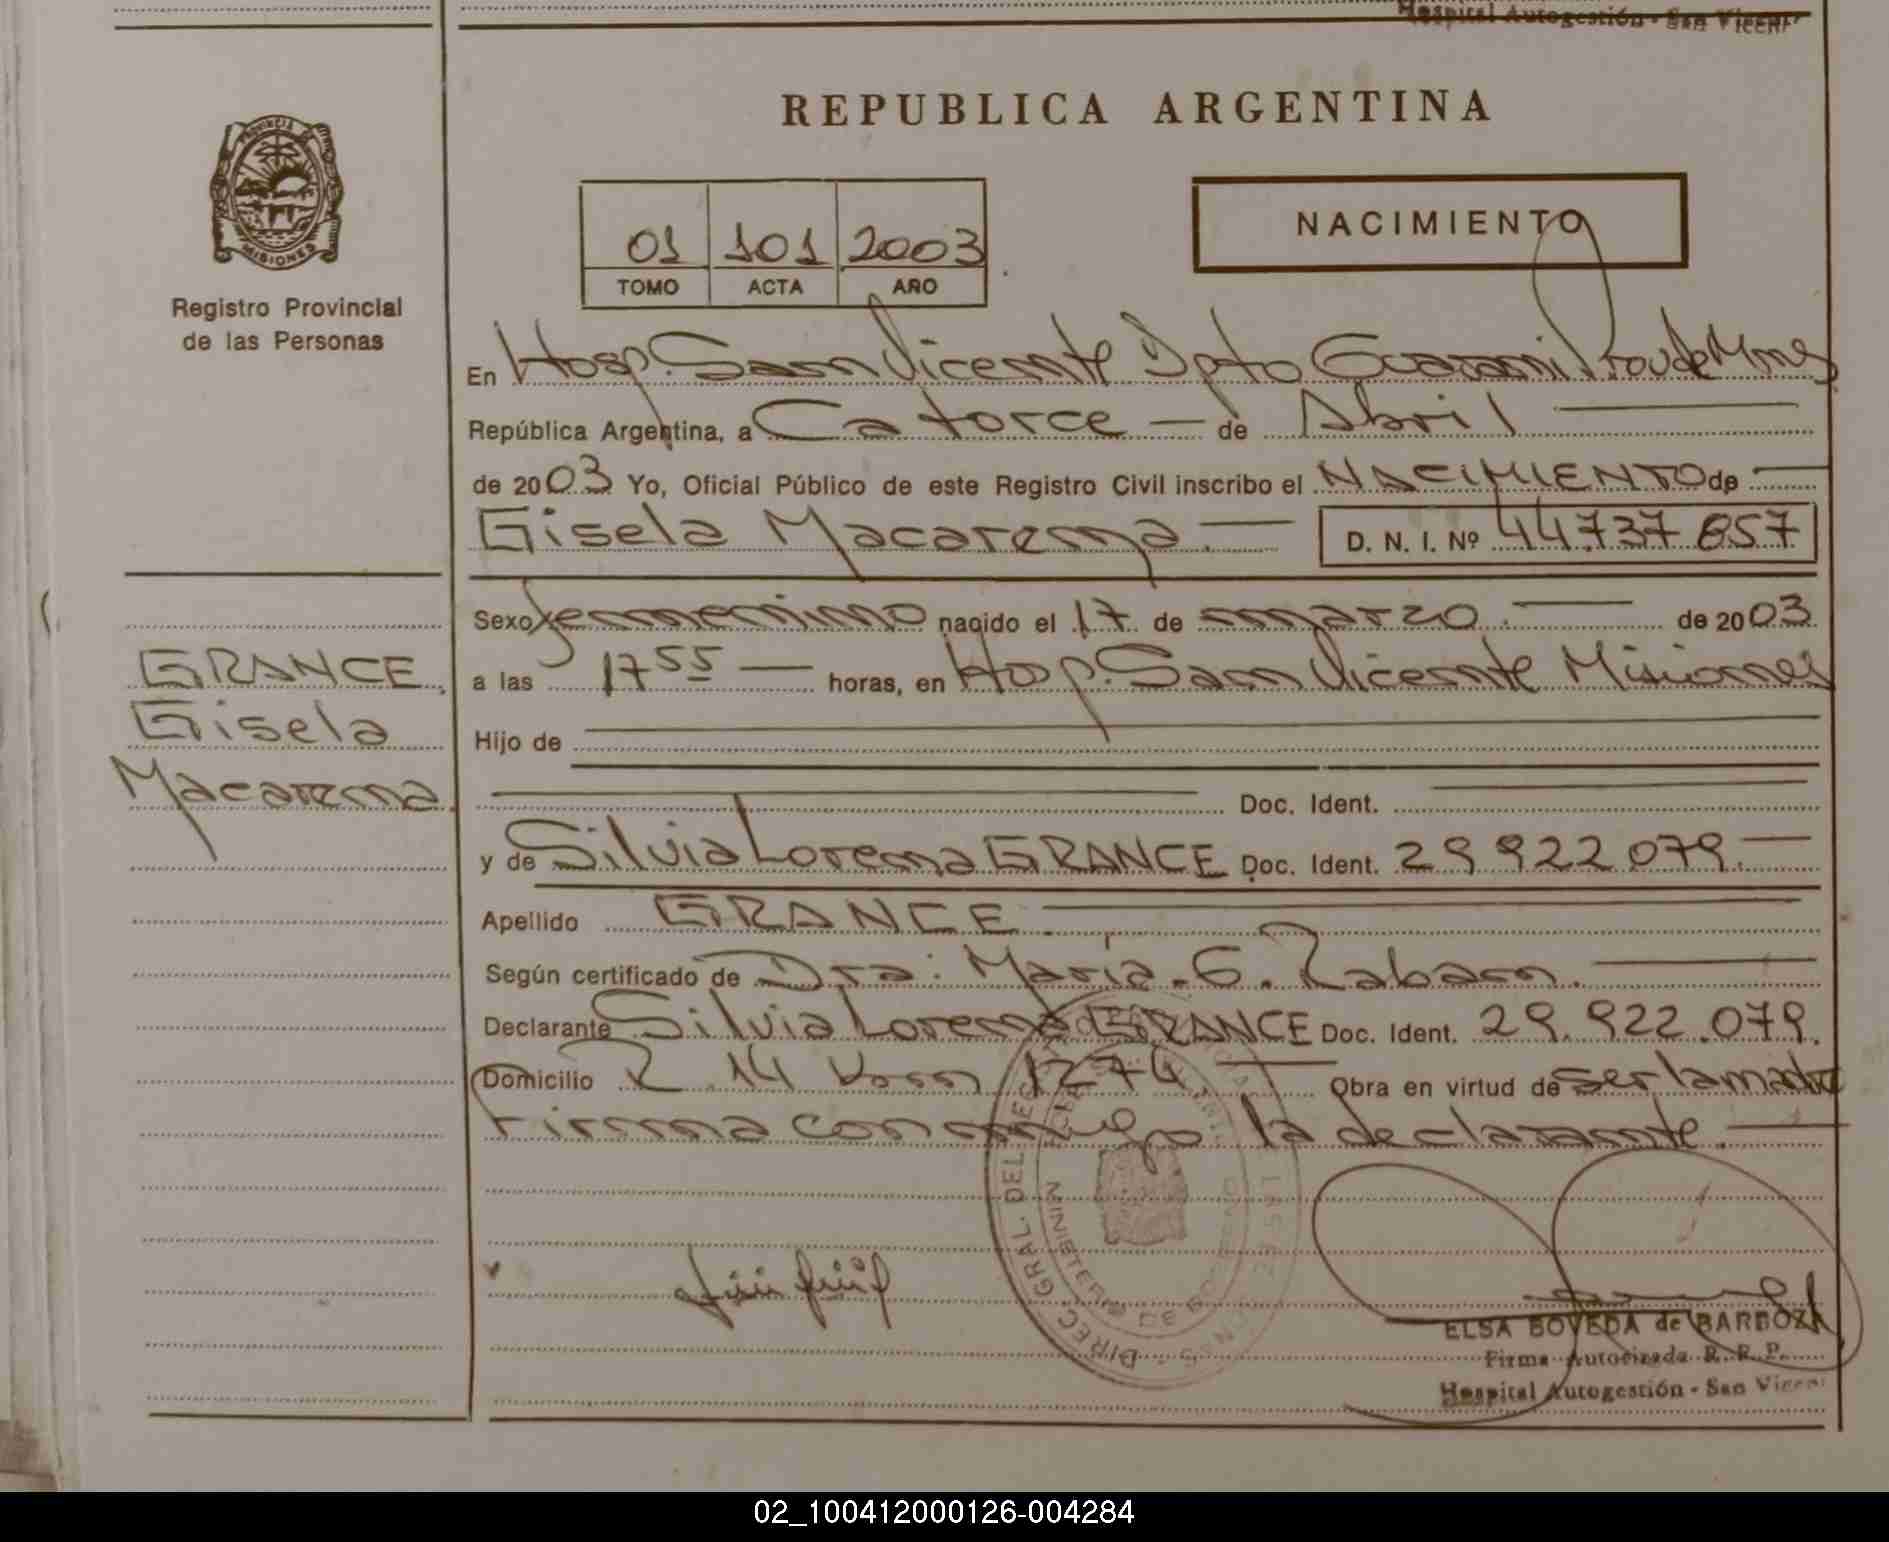 Hospital Autogestión - San Vicent
REPUBLICA ARGENTINA
PROVINCIA DE
MISIONES
Registro Provincial
de las Personas
01 101 2003
TOMO ACTA AÑO
NACIMIENTO
En Hosp. San Vicente Dpto Guarani Prov de Mnes
República Argentina, a Catorce — de Abril
de 2003 Yo, Oficial Público de este Registro Civil inscribo el NACIMIENTO de
Gisela Macarena. — D. N. I. Nº 44.737.857
Sexo femenino nacido el 17 de marzo. — de 2003
a las 17 55 — horas, en Hosp. San Vicente Misiones
GRANCE
Gisela
Macarena.
Hijo de
Doc. Ident.
y de Silvia Lorena GRANCE Doc. Ident. 29 922 079. —
Apellido GRANCE. —
Según certificado de Dra: María. G. Zabam. —
Declarante Silvia Lorena GRANCE Doc. Ident. 29.922.079.
Domicilio R. 14 Km 1274 — Obra en virtud de ser la madre
Firma conmigo la declarante. —
DIREC. GRAL. DEL REG.
MINISTERIO DE GOBIERNO
ELSA BOVEDA de BARBOZA
Firma Autorizada R. P. P.
Hospital Autogestión - San Vicent
02_100412000126-004284